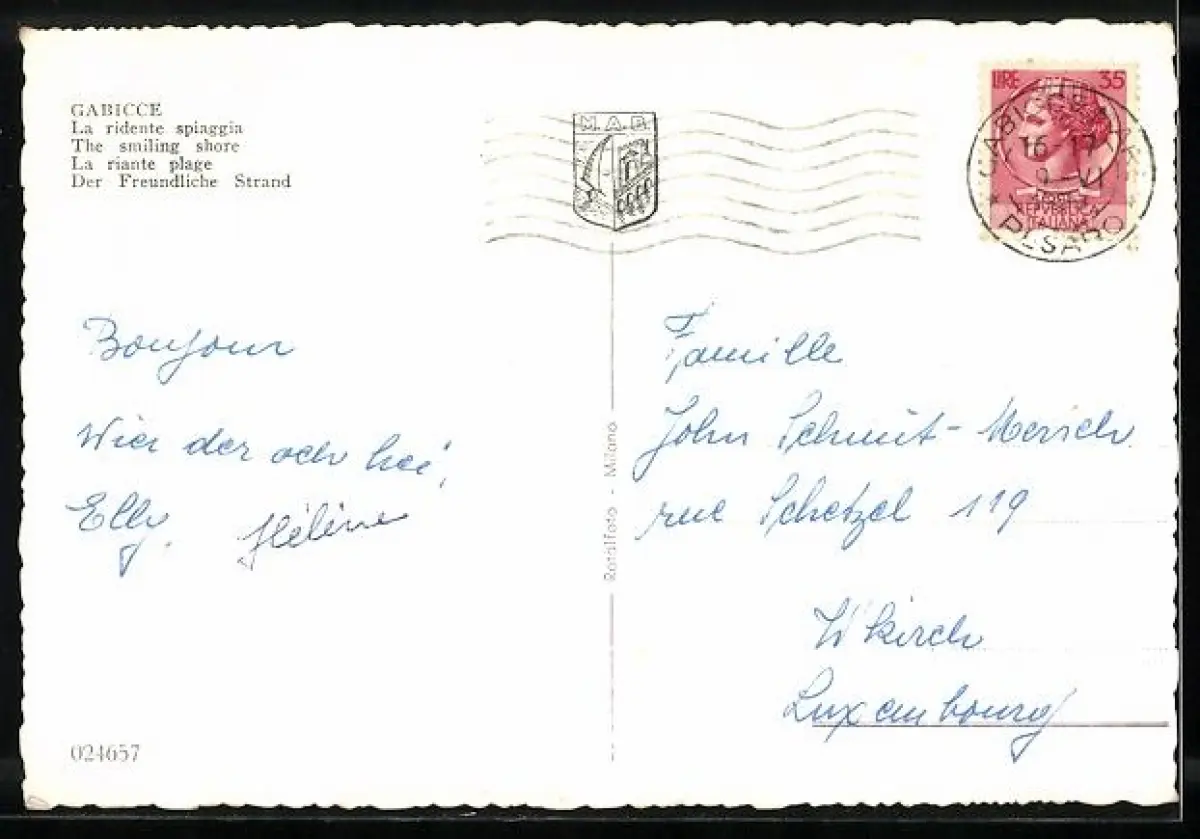 GABICCE
La ridente spiaggia
The smiling shore
La riante plage
Der Freundliche Strand
M.A.B.
LIRE 35
16-17
REPVBBLICA
ITALIANA
PESARO
Bonjour
Wier der och hei,
Elly. Hélène
Famille
John Schmit-Mersch
rue Schetzel 119
Wkirch
Luxembourg
Rotalfoto - Milano
024657